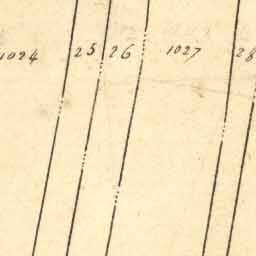 1024 25 26 1027 28